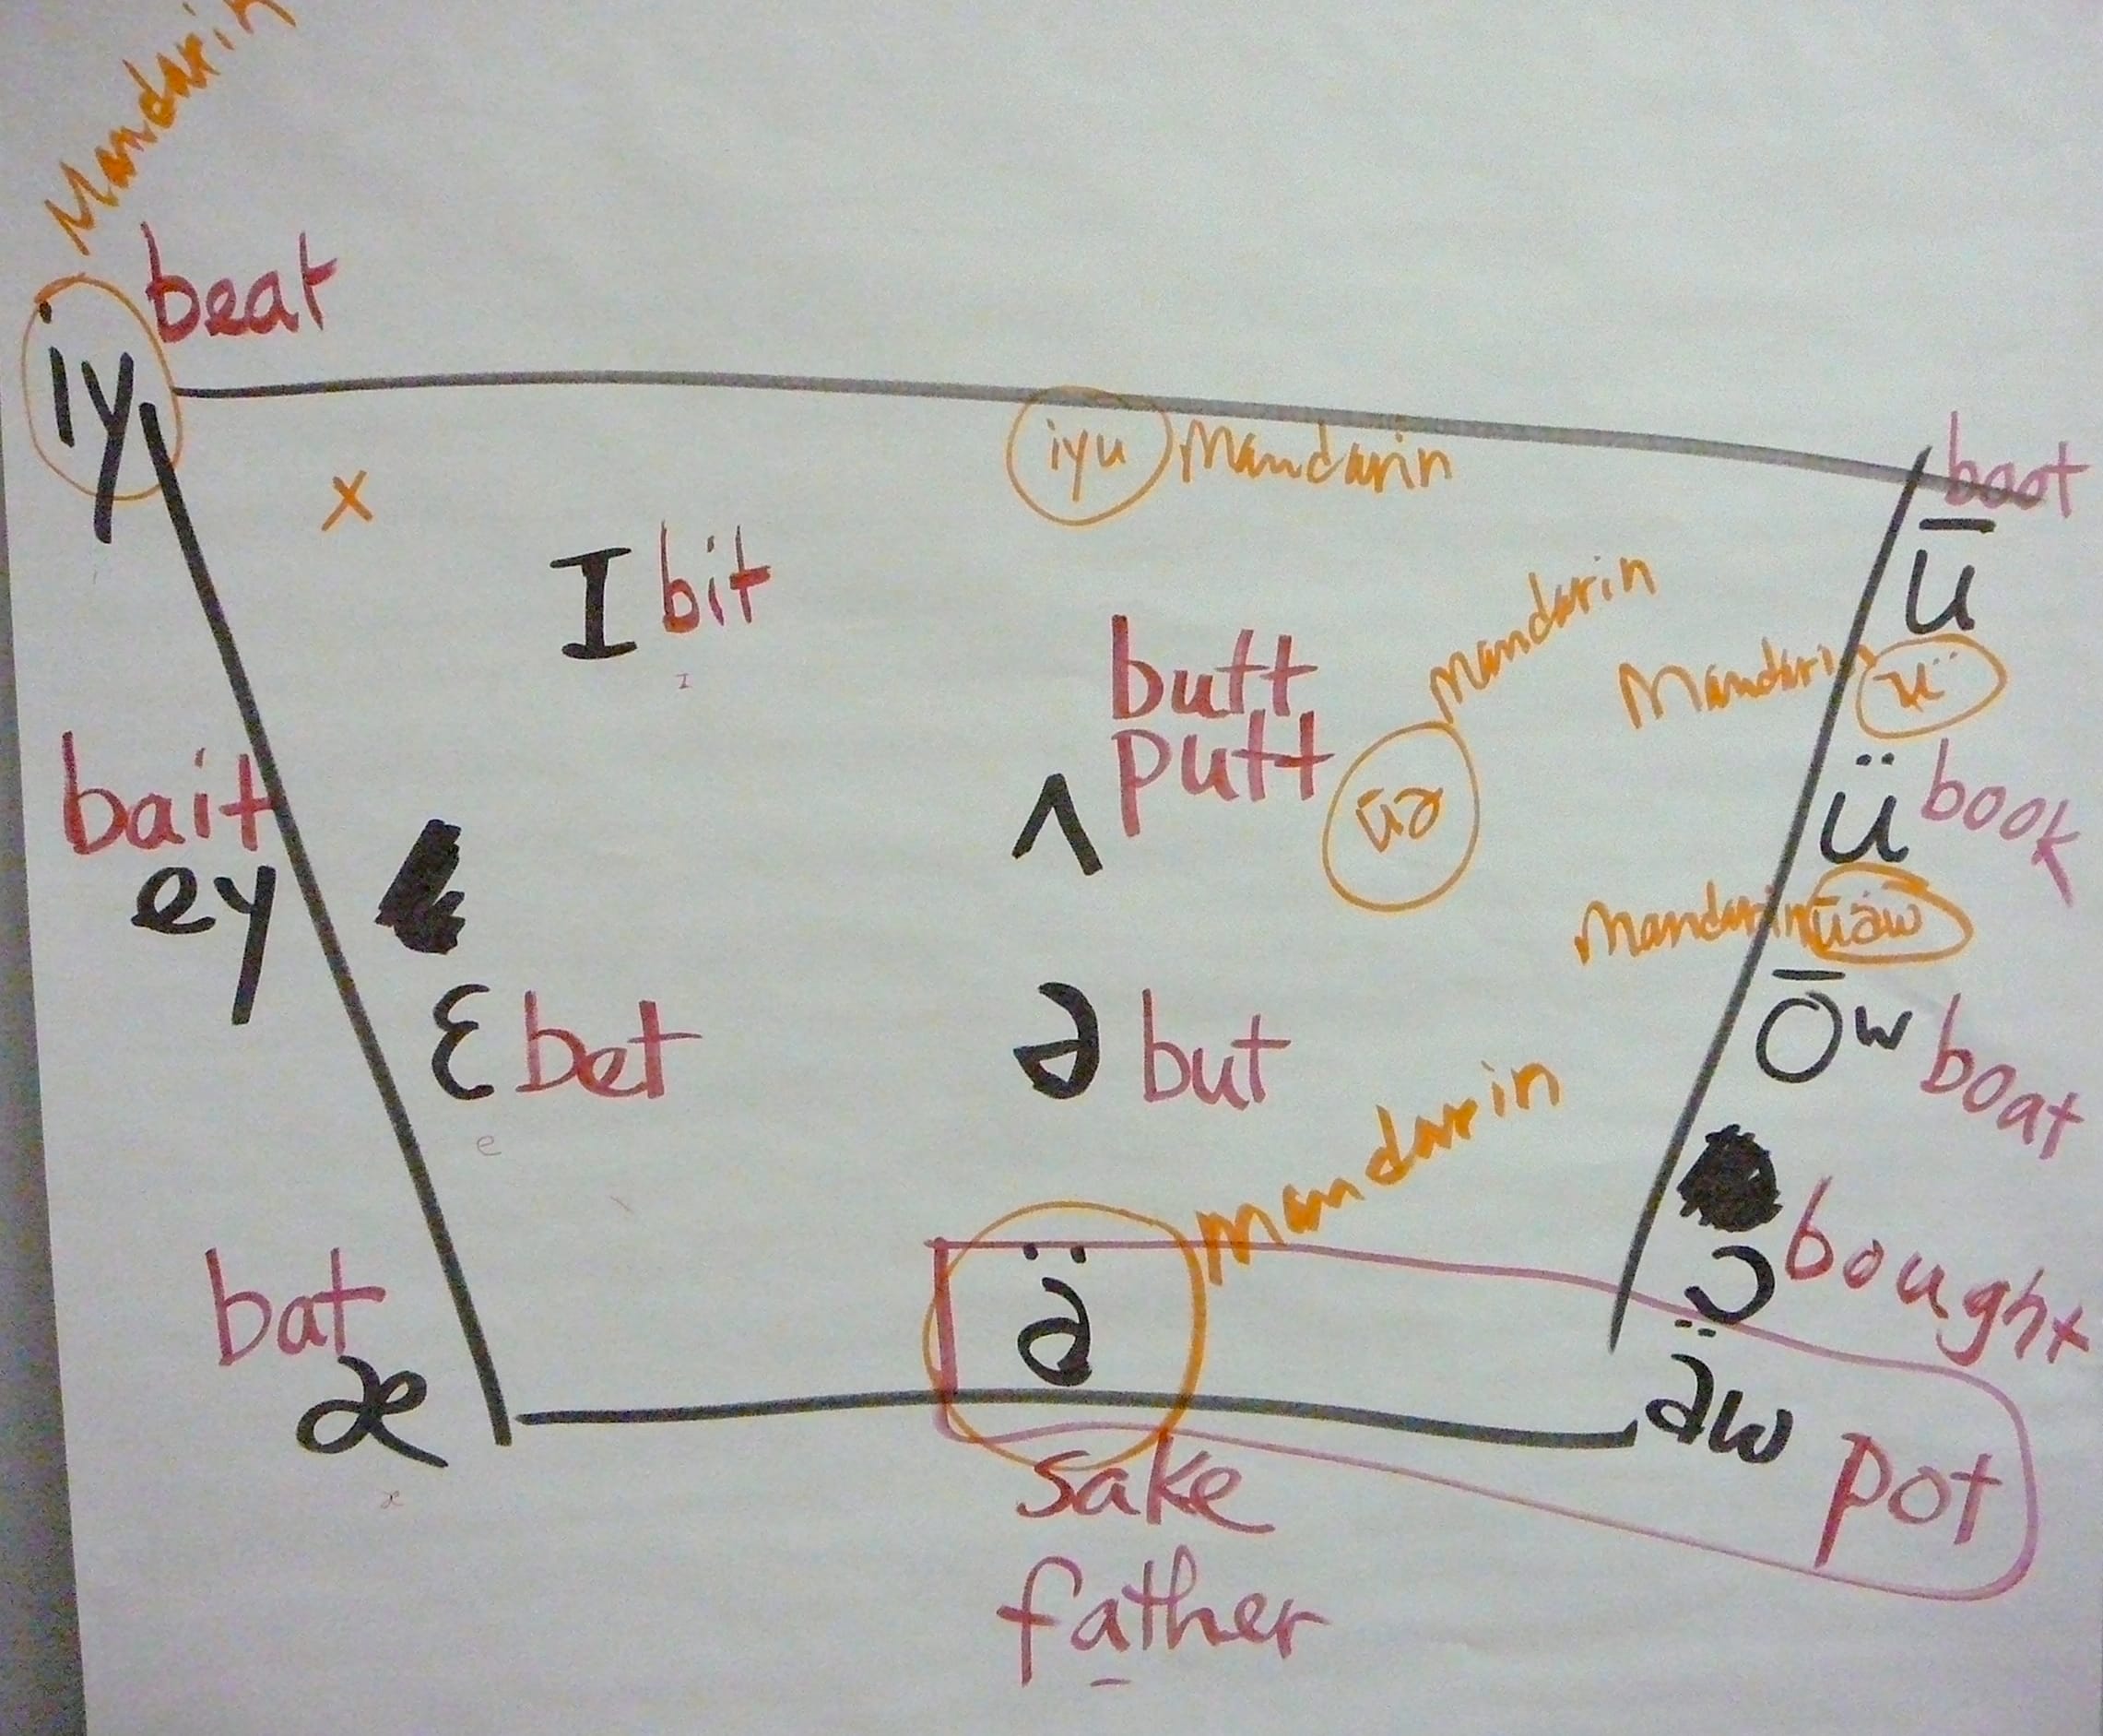 Mandarin
beat
iy
iyu Mandarin
x
boot
ū
I bit
I
butt
putt
ʌ
mandarin
ūə
Mandarin ü
ü book
bait
ey
Mandarin ūäw
ōw boat
ɛ bet
e
ə but
mandarin
ä
ɔ bought
äw
pot
bat
æ
æ
sake
father